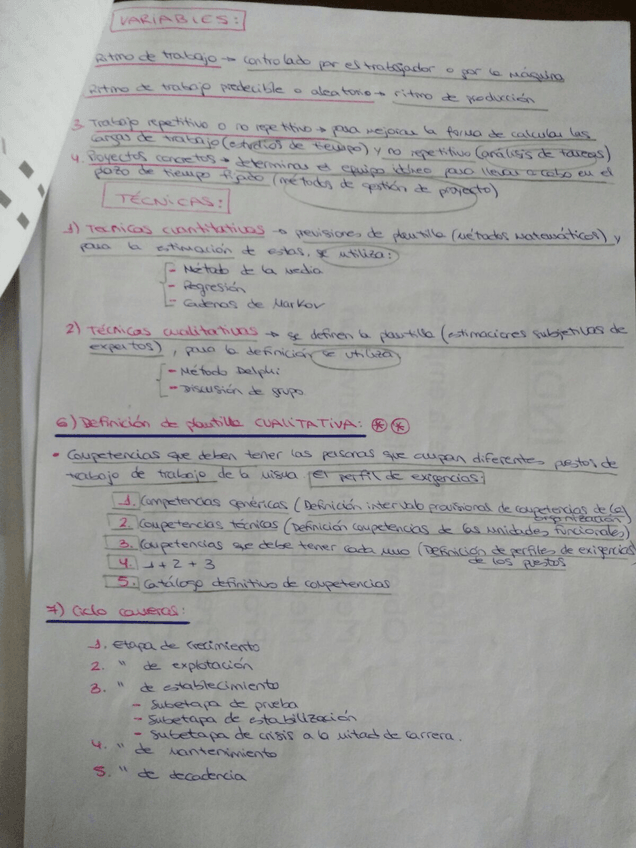 VARIABLES:
Ritmo de trabajo → controlado por el trabajador o por la máquina
Ritmo de trabajo predecible o aleatorio → ritmo de producción
3. Trabajo repetitivo o no repetitivo → para mejorar la forma de calcular las
cargas de trabajo (estudios de tiempo) y no repetitivo (análisis de tareas)
4. Proyectos concretos → determinar el equipo idóneo para llevar a cabo en el
plazo de tiempo fijado (métodos de gestión de proyecto)
TÉCNICAS:
1) Técnicas cuantitativas → previsiones de plantilla (métodos matemáticos) y
para la estimación de estas, se utiliza:
- Método de la media
- Regresión
- Cadenas de Markov
2) Técnicas cualitativas → se definen la plantilla (estimaciones subjetivas de
expertos), para la definición se utiliza
- Método Delphi
- Discusión de grupo
6) Definición de plantilla CUALITATIVA: ⊛ ⊛
• Competencias que deben tener las personas que ocupan diferentes puestos de
trabajo de trabajo de la misma (el perfil de exigencias:
1. Competencias genéricas (Definición intervalo provisional de competencias de la
organización)
2. Competencias técnicas (Definición competencias de las unidades funcionales)
3. Competencias que debe tener cada uno (Definición de perfiles de exigencias
de los puestos
4. 1 + 2 + 3
5. Catálogo definitivo de competencias
7) Ciclo carreras:
1. Etapa de crecimiento
2. " de explotación
3. " de establecimiento
- Subetapa de prueba
- Subetapa de estabilización
- Subetapa de crisis a la mitad de carrera.
4. " de mantenimiento
5. " de decadencia